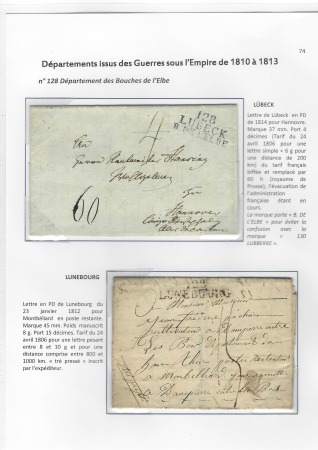 74
Départements issus des Guerres sous l'Empire de 1810 à 1813
n° 128 Département des Bouches de l'Elbe
LÜBECK
Lettre de Lübeck en PD
de 1814 pour Hannovre.
Marque 37 mm. Port 4
décimes (Tarif du 24
avril 1806 pour une lettre
simple < 6 g pour
une distance de 200
km) du tarif français
biffée et remplacé par
60 h (royaume de
Prusse), l'évacuation de
l'administration
française étant en
cours.
La marque porte « B. DE
L'ELBE » pour éviter la
confusion avec la
marque « 130
LUBBEKE ».
128
LUBECK
B. DE L'ELBE
4
60
Hannover
LUNEBOURG
Lettre en PD de Lunebourg du
23 janvier 1812 pour
Montbéliard en poste restante.
Marque 45 mm. Poids manuscrit
8 g. Port 15 décimes. Tarif du 24
avril 1806 pour une lettre pesant
entre 8 et 10 g et pour une
distance comprise entre 800 et
1000 km. « tré pressé » inscrit
par l'expéditeur.
128
LUNEBOURG
A Monsieur
a Montbelliard
a Dampierre